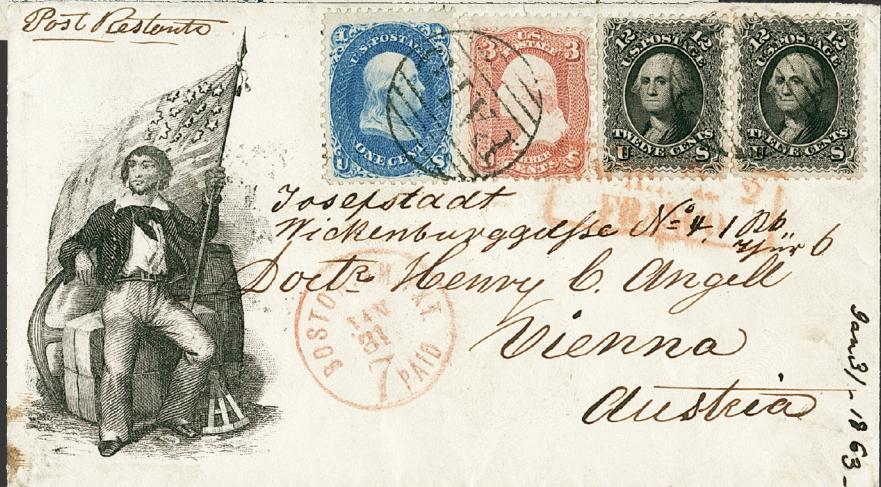 Post Restante
1 U.S. POSTAGE 1
U ONE CENT S
3 U.S. POSTAGE 3
U CENTS S
12 U.S. POSTAGE 12
U TWELVE CENTS S
12 U.S. POSTAGE 12
U TWELVE CENTS S
PAID
Josefstadt
Wickenburggasse No 4, 1
Thür 6
Doctr Henry C. Angell
Vienna
Austria
BOSTON Mº PKT
JAN
31
7
PAID
Jan 31 - 1863 -